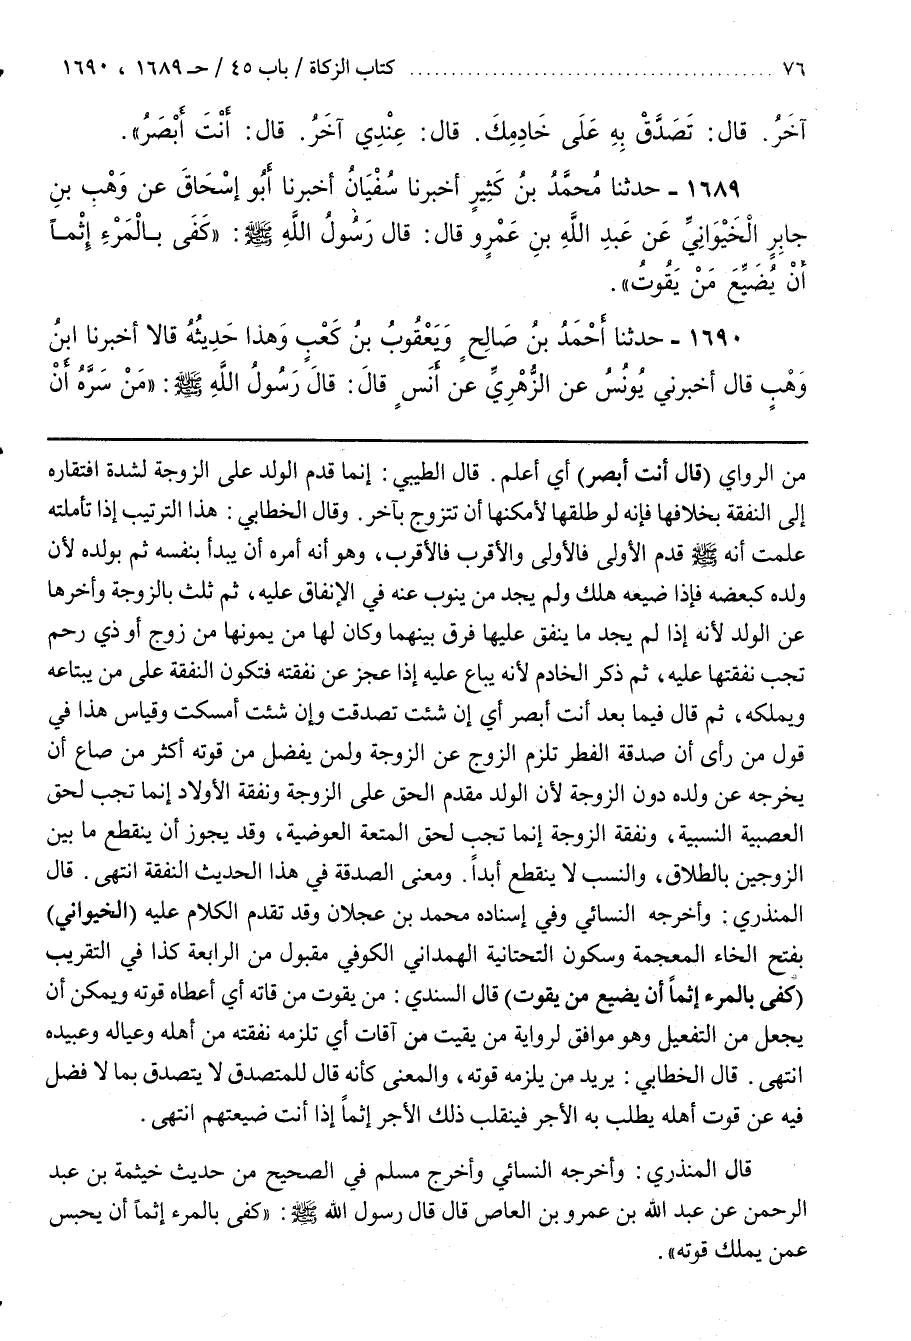 ٧٦ ........................................ كتاب الزكاة / باب ٤٥ / حـ ١٦٨٩ ، ١٦٩٠
آخَرُ. قال: تَصَدَّقْ بِهِ عَلَى خَادِمِكَ. قال: عِنْدِي آخَرُ. قال: أَنْتَ أَبْصَرُ».
١٦٨٩ ـ حدثنا مُحمَّدُ بنُ كَثِيرٍ أخبرنا سُفْيَانُ أخبرنا أَبُو إسْحَاقَ عن وَهْبِ بنِ
جابِرٍ الْخَيْوَانِيِّ عَن عَبدِ اللَّهِ بنِ عَمْرٍو قال: قال رَسُولُ اللَّهِ ﷺ: «كَفَى بـالْمَرْءِ إثْمـاً
أَنْ يُضَيِّعَ مَنْ يَقُوتُ».
١٦٩٠ ـ حدثنا أَحْمَدُ بنُ صَالِحٍ وَيَعْقُوبُ بنُ كَعْبٍ وَهذا حَدِيثُهُ قالا أخبرنا ابنُ
وَهْبٍ قال أخبرني يُونُسُ عن الزُّهْرِيِّ عن أَنَسٍ قالَ: قالَ رَسُولُ اللَّهِ ﷺ: «مَنْ سَرَّهُ أَنْ
من الرواي (قال أنت أبصر) أي أعلم. قال الطيبي: إنما قدم الولد على الزوجة لشدة افتقاره
إلى النفقة بخلافها فإنه لو طلقها لأمكنها أن تتزوج بآخر. وقال الخطابي: هذا الترتيب إذا تأملته
علمت أنه ﷺ قدم الأولى فالأولى والأقرب فالأقرب، وهو أنه أمره أن يبدأ بنفسه ثم بولده لأن
ولده كبعضه فإذا ضيعه هلك ولم يجد من ينوب عنه في الإنفاق عليه، ثم ثلث بالزوجة وأخرها
عن الولد لأنه إذا لم يجد ما ينفق عليها فرق بينهما وكان لها من يمونها من زوج أو ذي رحم
تجب نفقتها عليه، ثم ذكر الخادم لأنه يباع عليه إذا عجز عن نفقته فتكون النفقة على من يبتاعه
ويملكه، ثم قال فيما بعد أنت أبصر أي إن شئت تصدقت وإن شئت أمسكت وقياس هذا في
قول من رأى أن صدقة الفطر تلزم الزوج عن الزوجة ولمن يفضل من قوته أكثر من صاع أن
يخرجه عن ولده دون الزوجة لأن الولد مقدم الحق على الزوجة ونفقة الأولاد إنما تجب لحق
العصبية النسبية، ونفقة الزوجة إنما تجب لحق المتعة العوضية، وقد يجوز أن ينقطع ما بين
الزوجين بالطلاق، والنسب لا ينقطع أبداً. ومعنى الصدقة في هذا الحديث النفقة انتهى. قال
المنذري: وأخرجه النسائي وفي إسناده محمد بن عجلان وقد تقدم الكلام عليه (الخيواني)
بفتح الخاء المعجمة وسكون التحتانية الهمداني الكوفي مقبول من الرابعة كذا في التقريب
(كفى بالمرء إثماً أن يضيع من يقوت) قال السندي: من يقوت من قاته أي أعطاه قوته ويمكن أن
يجعل من التفعيل وهو موافق لرواية من يقيت من آقات أي تلزمه نفقته من أهله وعياله وعبيده
انتهى. قال الخطابي: يريد من يلزمه قوته، والمعنى كأنه قال للمتصدق لا يتصدق بما لا فضل
فيه عن قوت أهله يطلب به الأجر فينقلب ذلك الأجر إثماً إذا أنت ضيعتهم انتهى.
قال المنذري: وأخرجه النسائي وأخرج مسلم في الصحيح من حديث خيثمة بن عبد
الرحمن عن عبد الله بن عمرو بن العاص قال قال رسول الله ﷺ: «كفى بالمرء إثماً أن يحبس
عمن يملك قوته».